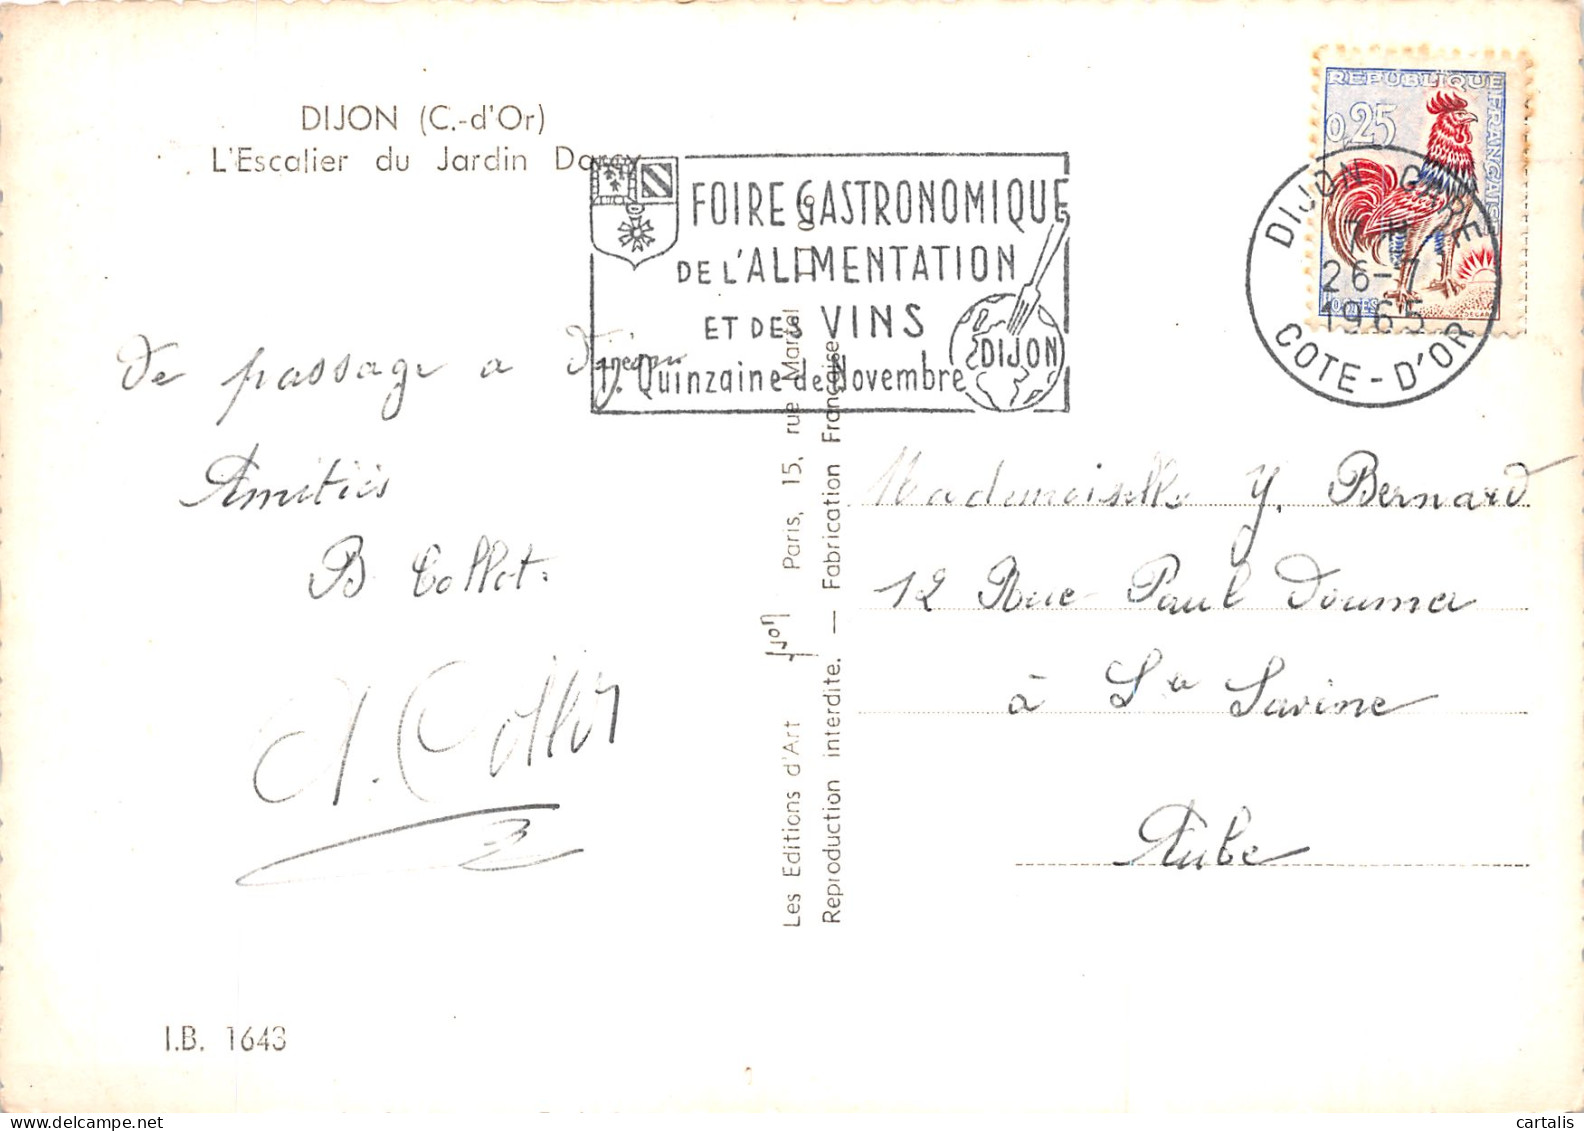 DIJON (C.-d'Or)
L'Escalier du Jardin Darcy
FOIRE GASTRONOMIQUE
DE L'ALIMENTATION
ET DES VINS
1re Quinzaine de Novembre
DIJON
REPUBLIQUE FRANÇAISE
0,25
POSTES
DECARIS
DIJON GARE
26-7
1965
COTE-D'OR
De passage a Dijon
Amitiés
B Collot.
A. Collot
I.B. 1643
Les Editions d'Art Yvon Paris, 15, rue Martel
Reproduction interdite. — Fabrication Française
Mademoiselle Y. Bernard
12 Rue Paul Doumer
à Ste Savine
Aube
cartalis